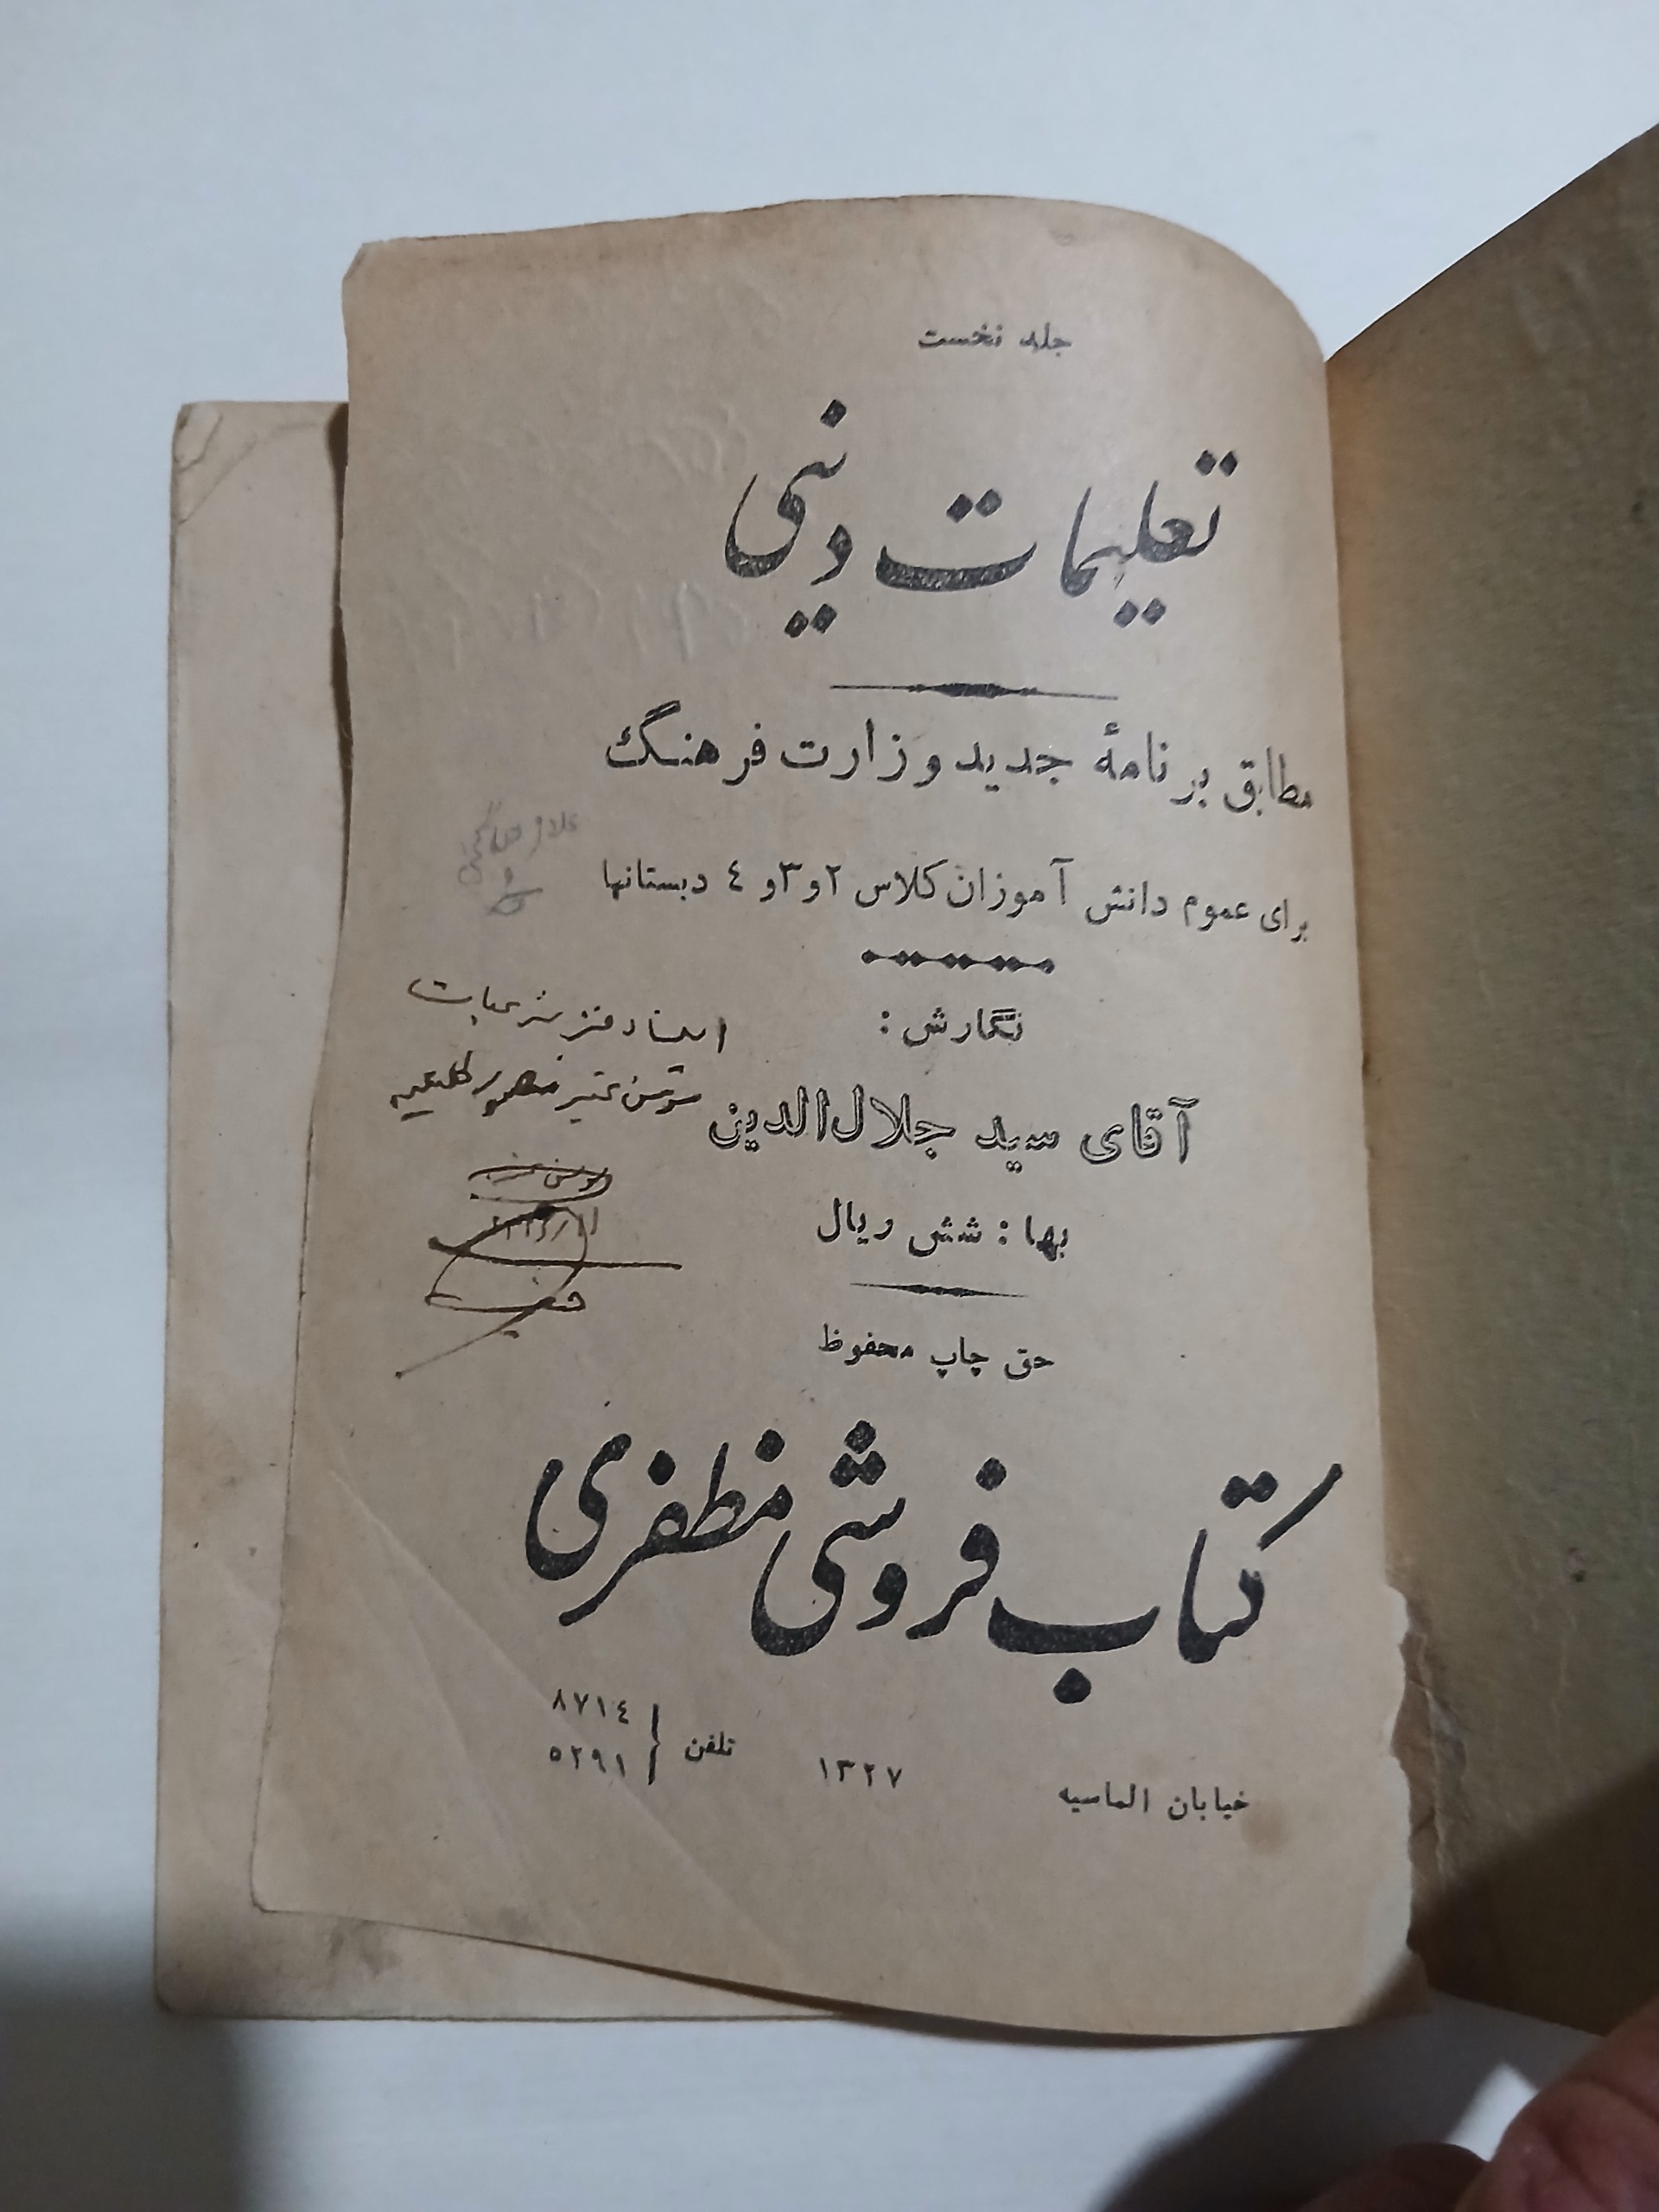 جلد نخست
تعلیمات دینی
مطابق برنامهٔ جدید وزارت فرهنگ
برای عموم دانش آموزان کلاس ۲ و ۳ و ٤ دبستانها
نگارش :
آقای سید جلال‌الدین
بها : شش ریال
حق چاپ محفوظ
کتاب فروشی مظفری
خیابان الماسیه
۱۳۲۷
تلفن
۸۷۱٤
۵۲۹۱